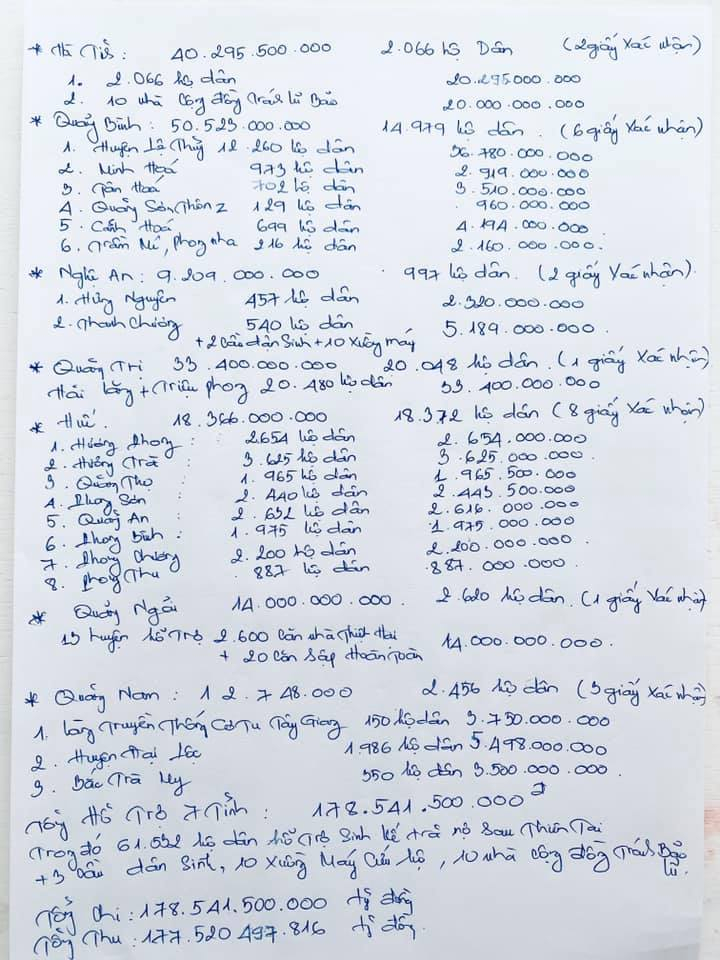 * Hà Tĩnh : 40.295.500.000 2.066 hộ Dân (2 giấy Xác nhận)
1. 2.066 hộ dân 20.295.000.000
2. 10 nhà Cộng đồng Tránh lũ Bão 20.000.000.000
* Quảng Bình : 50.523.000.000 14.979 hộ dân . (6 giấy Xác nhận)
1. Huyện Lệ Thủy 12.260 hộ dân 36.780.000.000
2. Minh Hoá 973 hộ dân 2.919.000.000
3. Tân Hoá 702 hộ dân 3.510.000.000
4. Quảng Sơn, Thôn 2 129 hộ dân 960.000.000
5. Cảnh Hoá 699 hộ dân 4.194.000.000
6. Trầm Mé, phong nha 216 hộ dân 2.160.000.000.
* Nghệ An : 9.209.000.000 997 hộ dân. (2 giấy Xác nhận).
1. Hưng Nguyên 457 hộ dân 2.320.000.000
2. Thanh Chương 540 hộ dân 5.189.000.000.
+ 2 Cầu dân Sinh + 10 Xuồng máy
* Quảng Trị 33.400.000.000 20.048 hộ dân. (1 giấy Xác nhận)
Hải lăng + Triệu phong 20.480 hộ dân 33.400.000.000
* Huế. 18.366.000.000 18.372 hộ dân (8 giấy Xác nhận)
1. Hương Phong : 2654 hộ dân 2.654.000.000
2. Hương Trà : 3.625 hộ dân 3.625.000.000
3. Quảng Thọ : 1.965 hộ dân 1.965.500.000
4. Phong Sơn : 2.440 hộ dân 2.443.500.000
5. Quảng An : 2.632 hộ dân 2.616.000.000
6. Phong Bình : 1.975 hộ dân 1.975.000.000
7. Phong Chương 2.200 hộ dân 2.200.000.000.
8. Phong Thu 887 hộ dân 887.000.000
* Quảng Ngãi 14.000.000.000. 2.620 hộ dân. (1 giấy Xác nhận)
13 huyện hỗ Trợ 2.600 Căn nhà Thiệt Hại 14.000.000.000.
+ 20 Căn Sập Hoàn Toàn
* Quảng Nam : 12.748.000 2.456 hộ dân (3 giấy Xác nhận)
1. làng Truyền Thống Cơ Tu Tây Giang 150 hộ dân 3.750.000.000
2. Huyện Đại Lộc 1.986 hộ dân 5.498.000.000
3. Bắc Trà My 350 hộ dân 3.500.000.000.
Tổng Hỗ Trợ 7 Tỉnh : 178.541.500.000
Trong đó 61.532 hộ dân hỗ Trợ Sinh kế trả nợ Sau Thiên Tai
+ 3 Cầu dân Sinh, 10 Xuồng Máy Cứu hộ, 10 nhà Cộng đồng Tránh Bão lũ.
Tổng Chi : 178.541.500.000 tỷ đồng
Tổng Thu : 177.520.497.816 tỷ đồng.